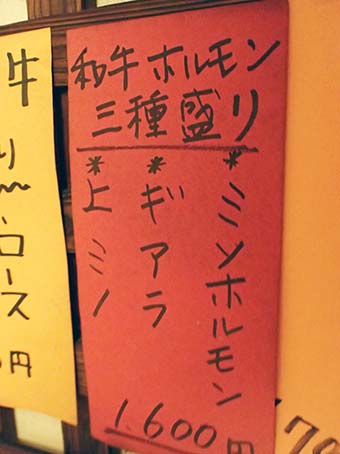 和牛ホルモン
三種盛り
*ミソホルモン
*ギアラ
*上ミノ
1,600円
牛
ロース
円